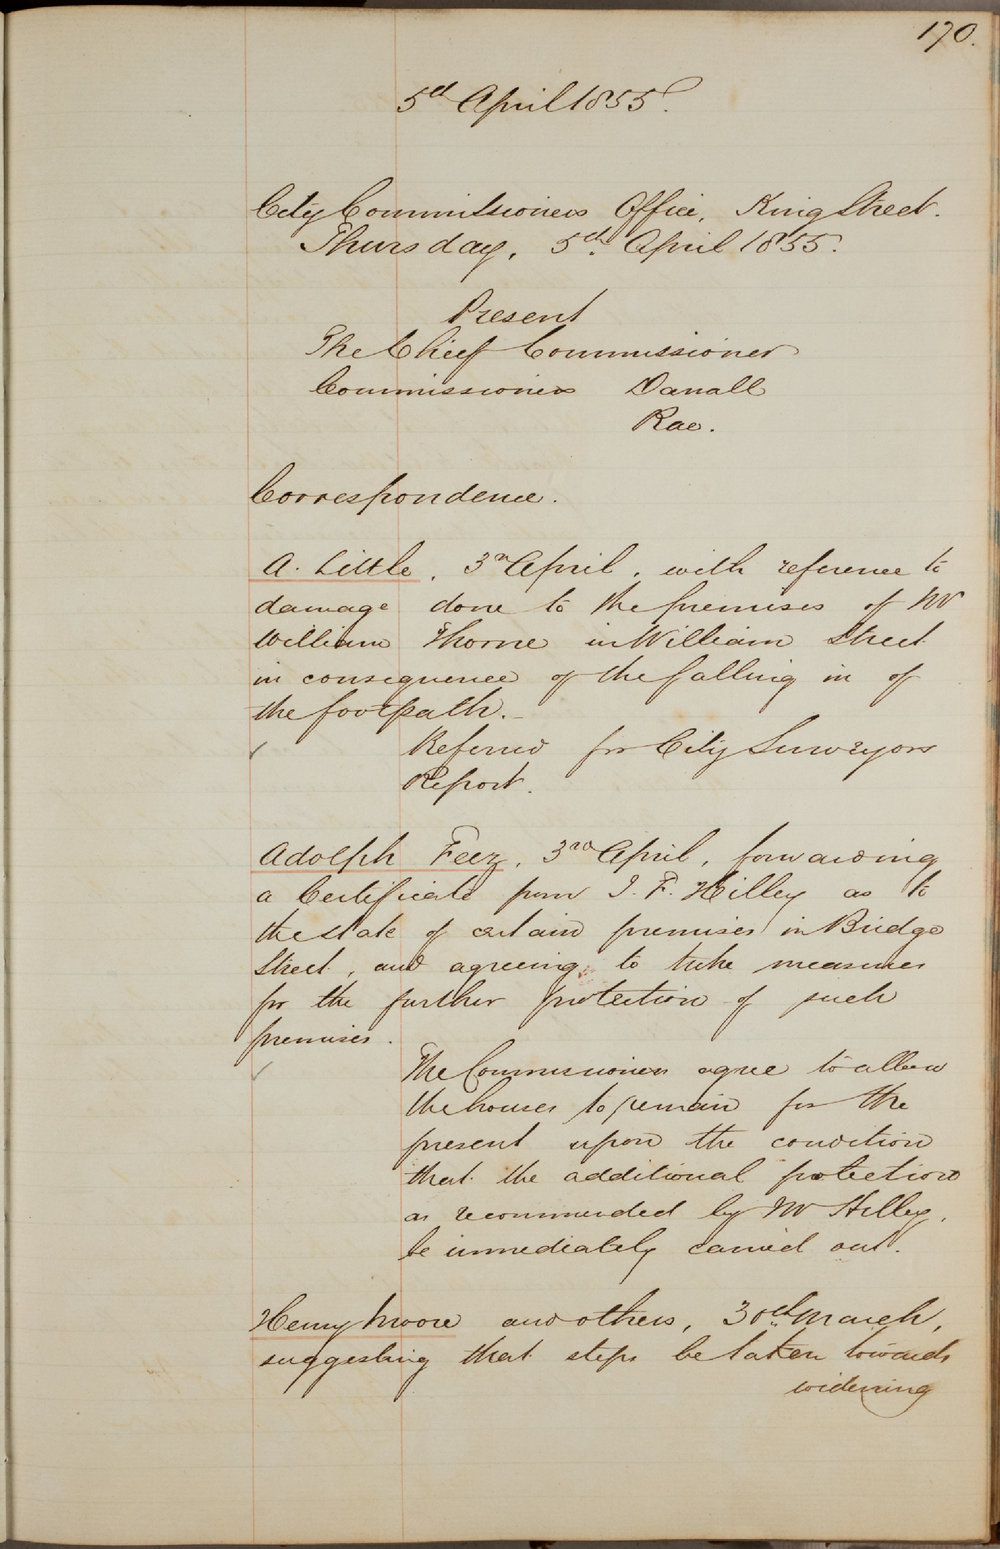 170.
5th April 1855.
City Commissioners Office, King Street.
Thursday, 5th April 1855.
Present
The Chief Commissioner
Commissioners Darvall
Rae.
Correspondence.
A. Little, 3rd April, with reference to
damage done to the premises of Mr
William Thorne in William Street
in consequence of the falling in of
the footpath.
Referred for City Surveyors
Report.
Adolph Feez, 3rd April, forwarding
a Certificate from J. F. Hilley as to
the state of certain premises in Bridge
Street, and agreeing to take measures
for the further protection of such
premises.
The Commissioners agree to allow
the houses to remain for the
present upon the condition
that the additional protection
as recommended by Mr Hilley,
be immediately carried out.
Henry Moore and others, 30th March,
suggesting that steps be taken towards
widening